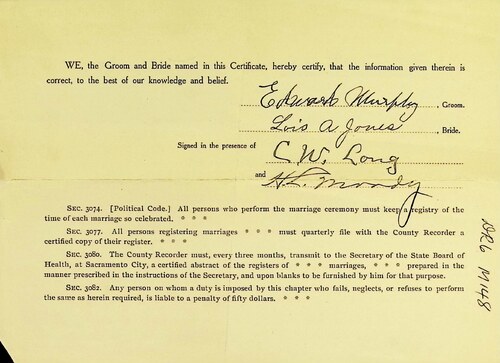 WE, the Groom and Bride named in this Certificate, hereby certify, that the information given therein is
correct, to the best of our knowledge and belief.
Edward Murphy, Groom.
Lois A Jones, Bride.
Signed in the presence of C. W. Long
and H. L. Moody
SEC. 3074. [Political Code.] All persons who perform the marriage ceremony must keep a registry of the
time of each marriage so celebrated. * * *
SEC. 3077. All persons registering marriages * * * must quarterly file with the County Recorder
a certified copy of their register. * * *
SEC. 3080. The County Recorder must, every three months, transmit to the Secretary of the State Board of
Health, at Sacramento City, a certified abstract of the registers of * * * marriages, * * * prepared in the
manner prescribed in the instructions of the Secretary, and upon blanks to be furnished by him for that purpose.
SEC. 3082. Any person on whom a duty is imposed by this chapter who fails, neglects, or refuses to perform
the same as herein required, is liable to a penalty of fifty dollars. * * *
M148